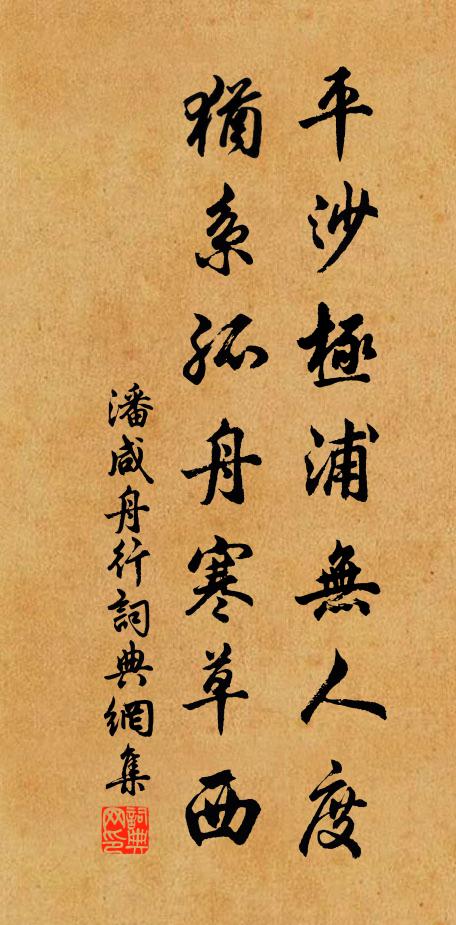 平沙極浦無人度
猶系孤舟寒草西
潘咸舟行詞典網集
詞典網印